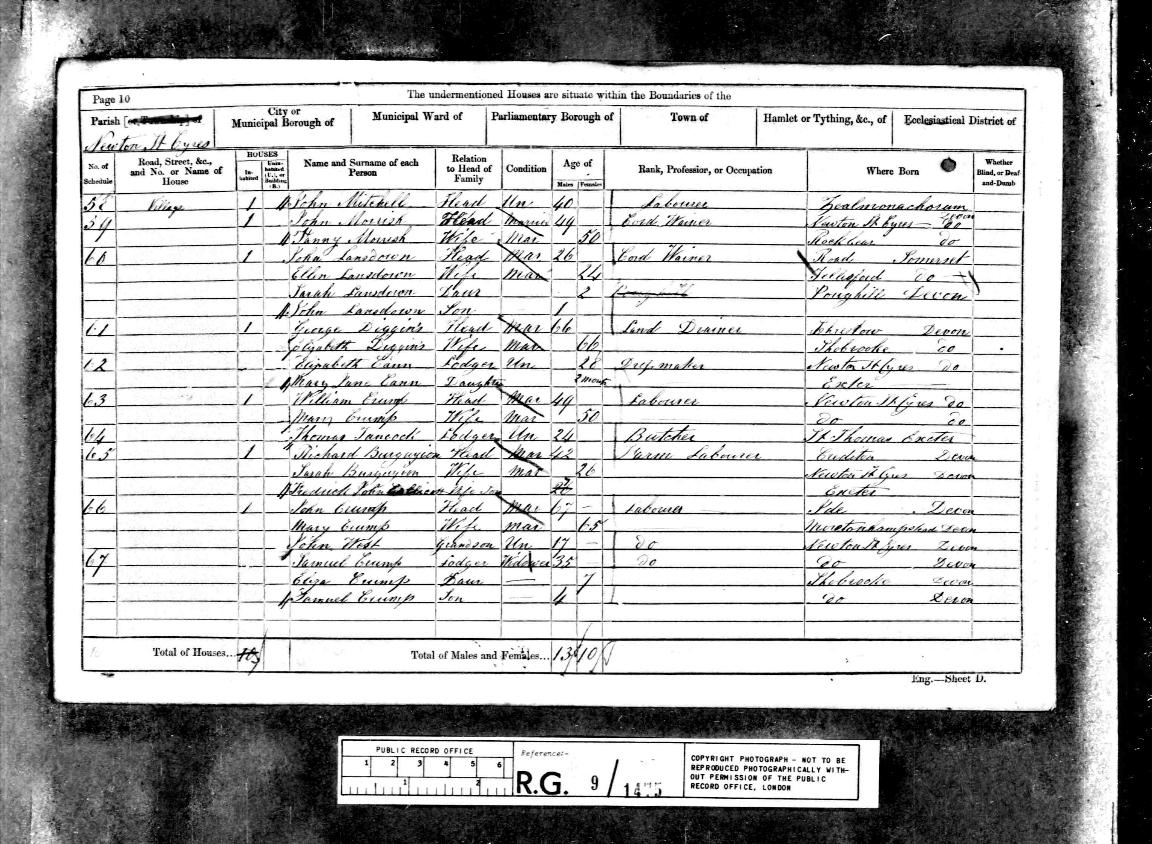 Page 10
The undermentioned Houses are situate within the Boundaries of the
Parish [or Township] of
City or Municipal Borough of
Municipal Ward of
Parliamentary Borough of
Town of
Hamlet or Tything, &c., of
Ecclesiastical District of
Newton St Cyres
No. of Schedule
Road, Street, &c., and No. or Name of House
HOUSES
Inhabited
Uninhabited (U.), or Building (B.)
Name and Surname of each Person
Relation to Head of Family
Condition
Age of
Males
Females
Rank, Profession, or Occupation
Where Born
Whether Blind, or Deaf-and-Dumb
58 Village 1 John Mitchell Head Un 40 Labourer Zealmonachorum Devon
59 1 John Morrish Head Married 49 Cord Wainer Newton St Cyres do
Fanny Morrish Wife Mar 50 Rockbear do
60 1 John Lansdown Head Mar 26 Cord Wainer Road Somerset
Ellen Lansdown Wife Mar 24 do
Sarah Lansdown Daur 2 Poughill Devon
John Lansdown Son 1
61 1 George Diggins Head Mar 66 Land Drainer Devon
Elizabeth Diggins Wife Mar 66 Shobrooke do
62 Elizabeth Cann Lodger Un 28 Dressmaker Newton St Cyres do
Mary Jane Cann Daughter 2 months Exeter
63 1 William Crump Head Mar 49 Labourer Newton St Cyres do
Mary Crump Wife Mar 50 do do
64 Thomas Lodger Un 24 Butcher St Thomas Exeter
65 1 Richard Burgoyion Head Mar 42 Farm Labourer Devon
Sarah Burgoyion Wife Mar 26 Newton St Cyres Devon
Fredrick John Wife Son Exeter
66 1 John Crump Head Mar 67 – Labourer Ide Devon
Mary Crump Wife Mar 65 Moretonhampstead Devon
John West Grandson Un 17 – do Newton St Cyres Devon
67 Samuel Crump Lodger Widower 35 – do do Devon
Eliza Crump Daur — 7 Shobrooke Devon
Samuel Crump Son — 4 do Devon
Total of Houses...
Total of Males and Females... 13 10
Eng.—Sheet D.
PUBLIC RECORD OFFICE
1 2 3 4 5 6
1 2
Reference:-
R.G. 9 / 1475
COPYRIGHT PHOTOGRAPH - NOT TO BE
REPRODUCED PHOTOGRAPHICALLY WITH-
OUT PERMISSION OF THE PUBLIC
RECORD OFFICE, LONDON